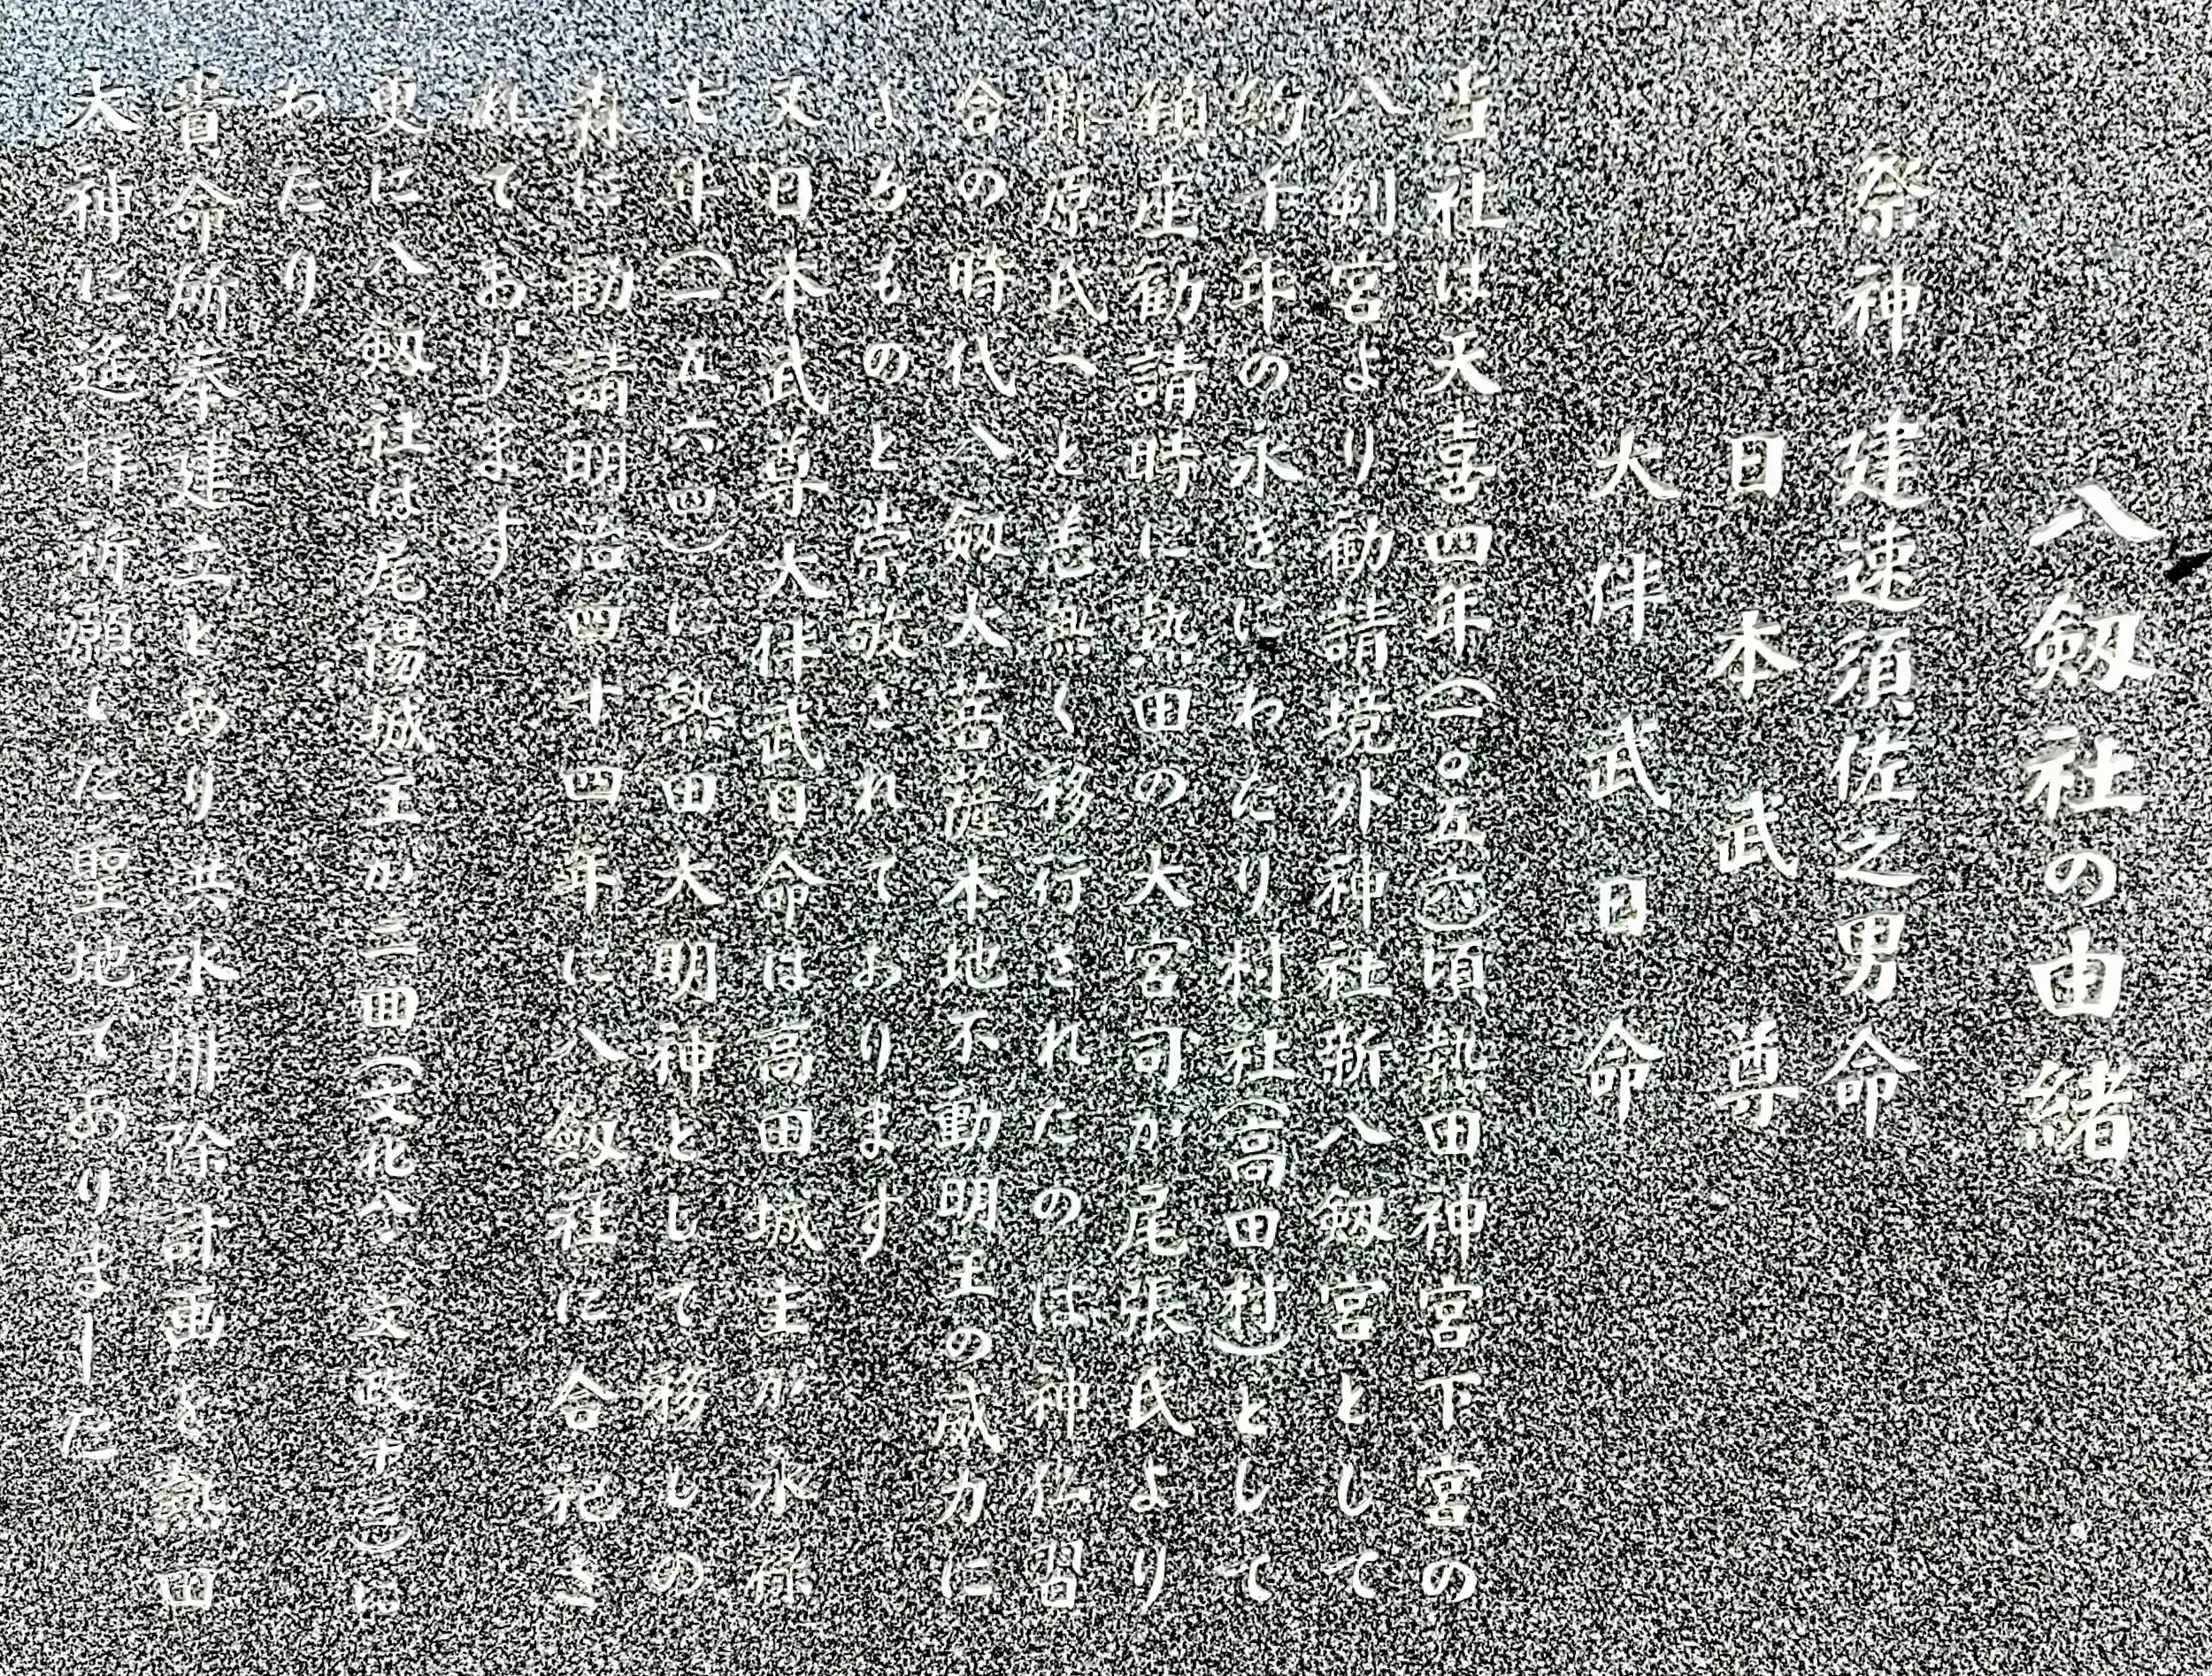 八劔社の由緒
祭神 建速須佐之男命
日本武尊
大伴武日命
当社は天喜四年(一〇五六)頃熱田神宮下宮の
八剣宮より勧請境外神社新八劔宮として
約千年の永きにわたり村社(高田村)として
鎮座勧請時に熱田の大宮司が尾張氏より
藤原氏へと恙無く移行されたのは神仏習
合の時代八劔大菩薩本地不動明王の威力に
よるものと崇敬されております
又日本武尊大伴武日命は高田城主が永禄
七年(一五六四)に熱田大明神として移しの
森に勧請明治四十四年に八劔社に合祀さ
れております
更に八劔社は尾陽城主が三回(文化八 文政十三)に
わたり
貴命所奉建立とあり洪水排除計画を熱田
大神に遥拝祈願した聖地でありました